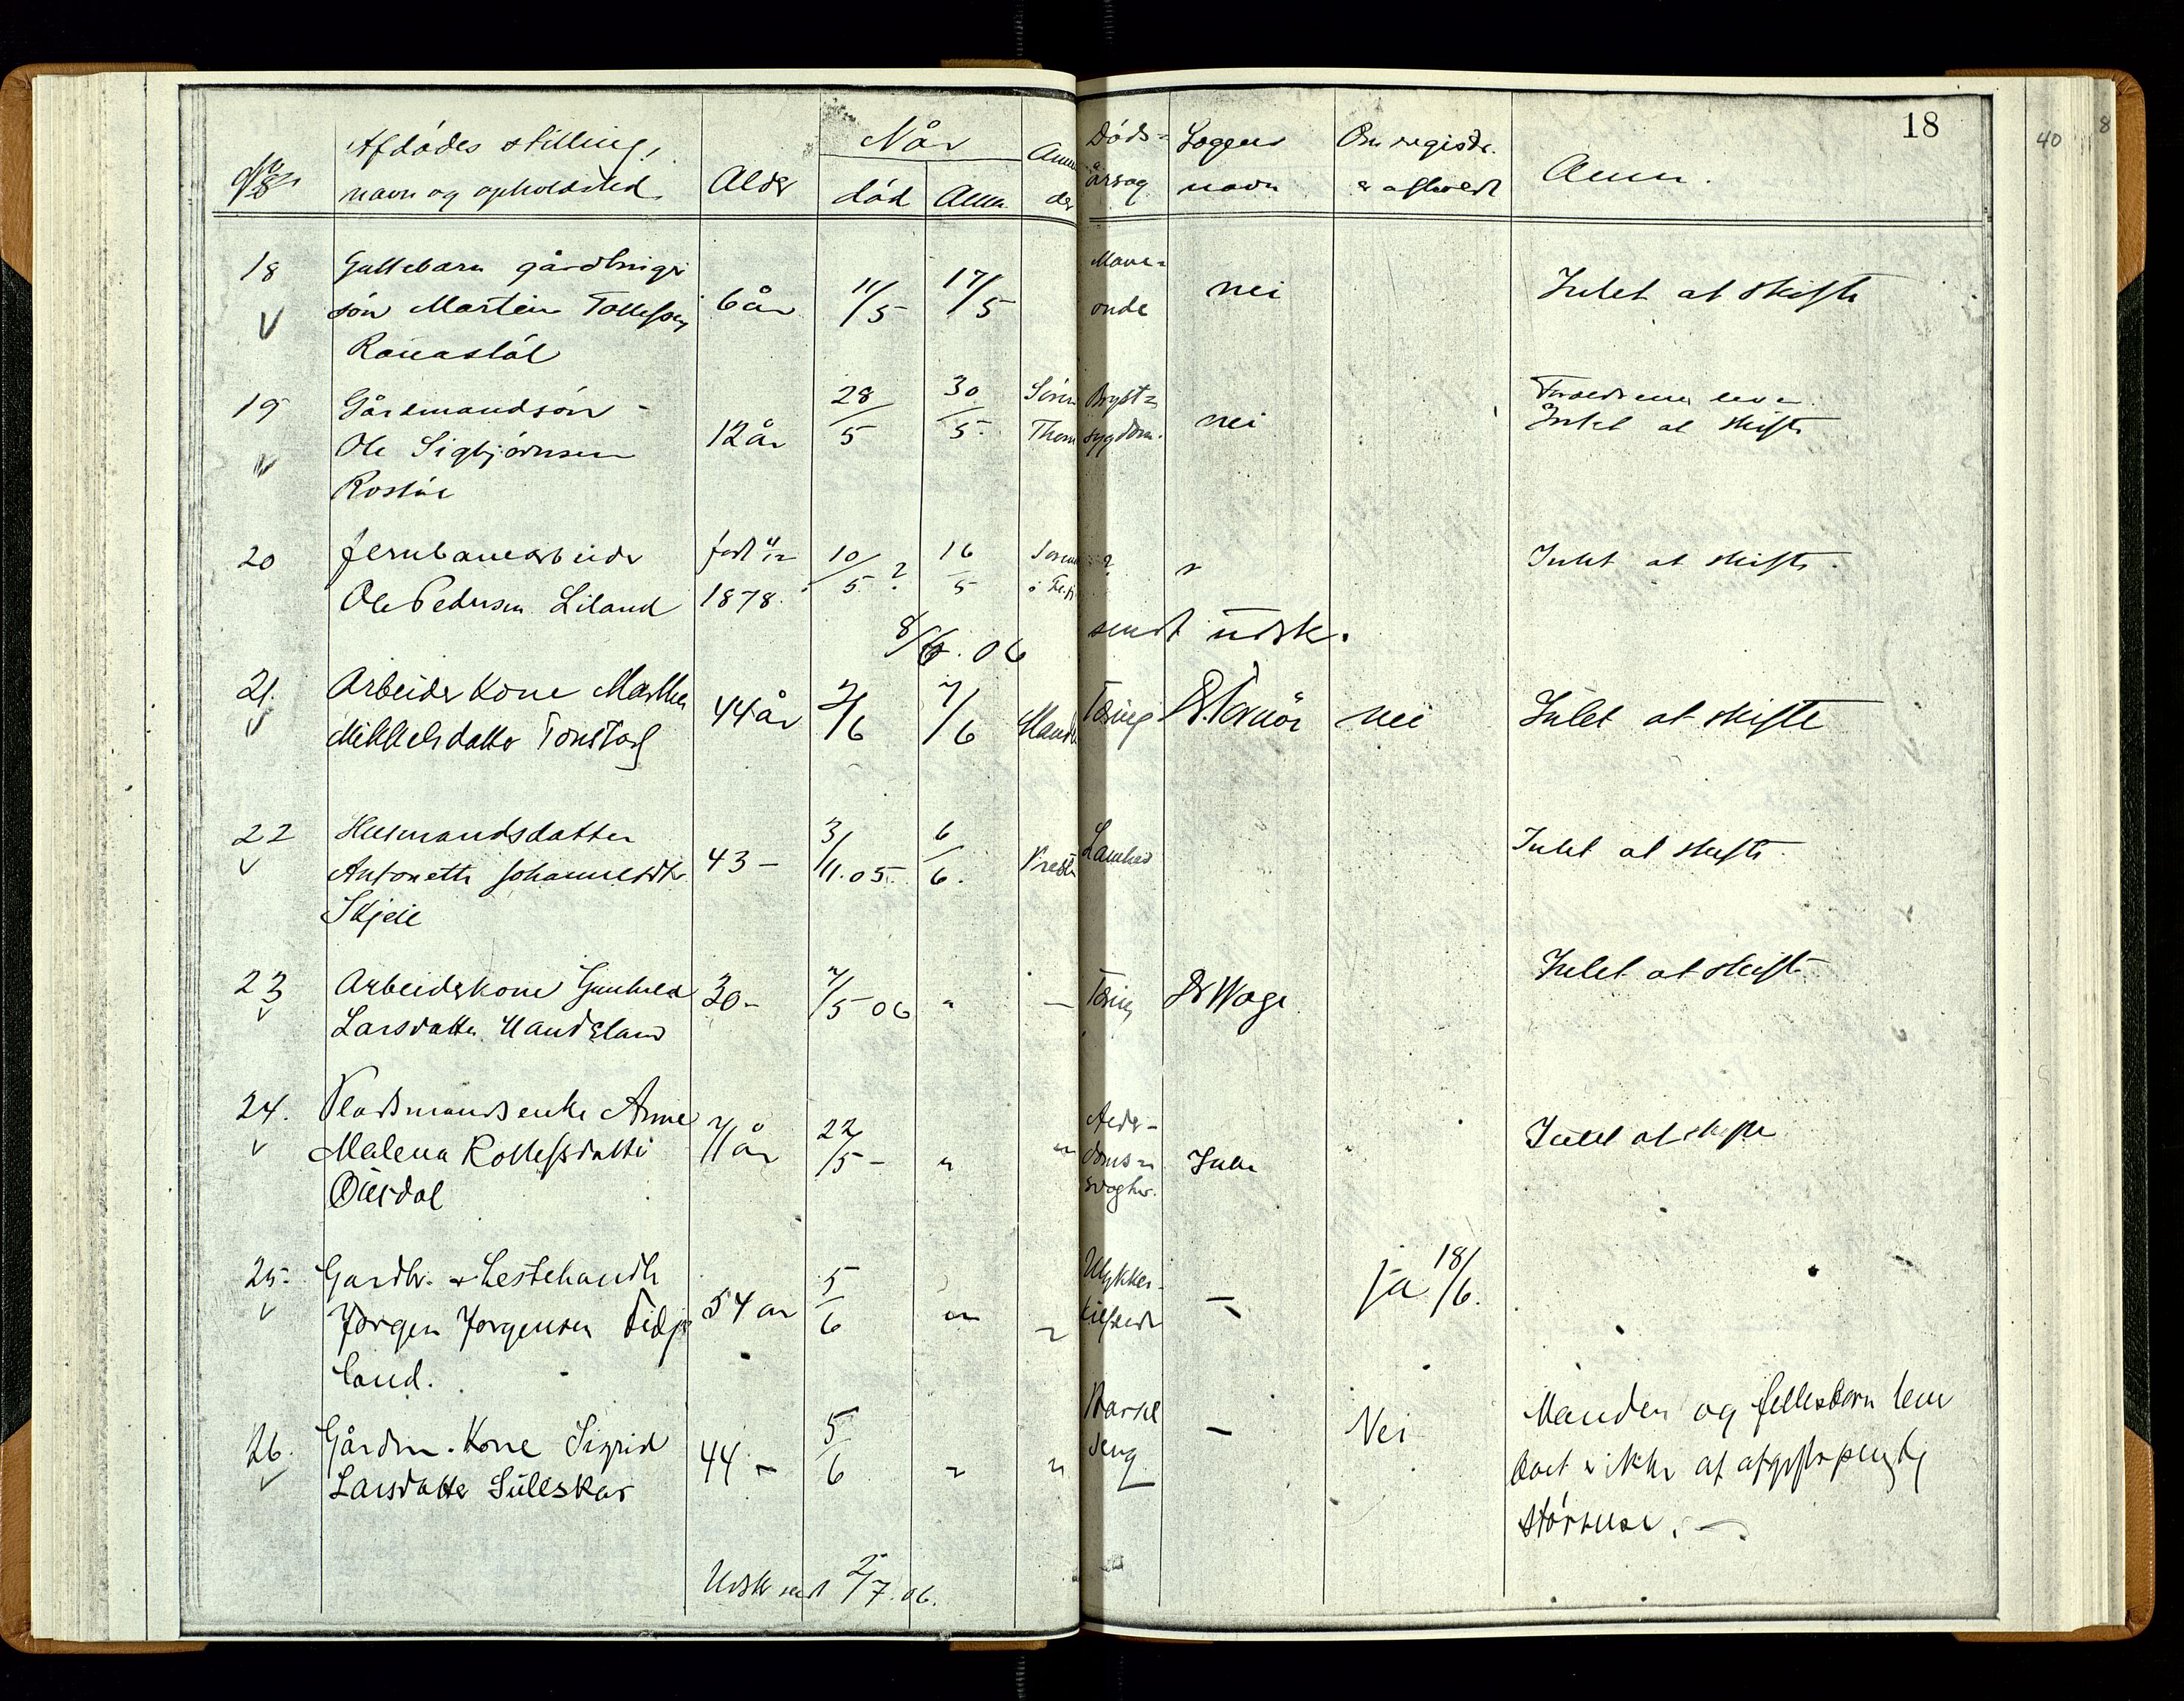 18
40
8
No
Afdødes stilling,
navn og opholdsted
Alder
Når
død
Anm
Anm
der
Døds-
årsag
Lægens
navn
Om registr.
er afholdt
Anm.
18
Guttebarn gårdbruger
søn Martin Tollefsen
6 år
11/5
17/5
Mave-
onde
nei
Intet at skifte
19
Gårdmandsøn
Ole Sigbjørnsen
12 år
28/5
30/5
Søren
Thom
Bryst-
sygdom.
nei
Forældrene lever
Intet at skifte
20
Jernbanearbeider
Ole Pedersen Liland
født
1878.
10/5 ?
16/5
?
Intet at skifte.
8/6.06
sendt udsk.
21.
Arbeider Kone Marthea
Mikkelsdatter Tonstad
44 år
2/6
7/6
Mand
Tæring
nei
Intet at skifte
22
Husmandsdatter
Antonette Johannesdtr
Skjeie
43 -
3/11.05.
6/6.
Lamhed
Intet at skifte.
23
Arbeiderkone Gunhild
Larsdatter Handeland
30 -
7/5 06
"
-
Tæring
Dr Wage
Intet at skifte
24.
Pladsmandsenke Anne
Malena Rollefsdatter
Ousdal
71 år
22/5 -
"
"
Alder-
doms-
svaghed.
Intet at skifte
25.
Gardbr. & Hestehandler
Jørgen Jørgensen Fidje
land.
54 år
5/6
"
"
Ulykkes-
tilfælde
-
ja 18/6.
26.
Gårdm. Kone Sigrid
Larsdatter Suleskar
44 -
5/6
"
"
Barsel
seng
-
Nei
Manden og fellesbarn lever
boet er ikke af afgiftspligtig
størrelse. -
Udskr sendt 2/7.06.